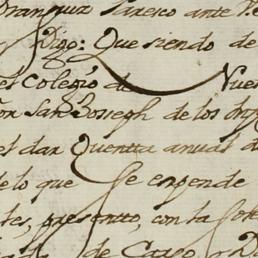 Tarasco ante V.
Digo: Que siendo de
el Colegio de Nues
Sor San Joseph de los
el dar Quentta anual
de lo que Se expende
tes, presentto, con la
de Cargo